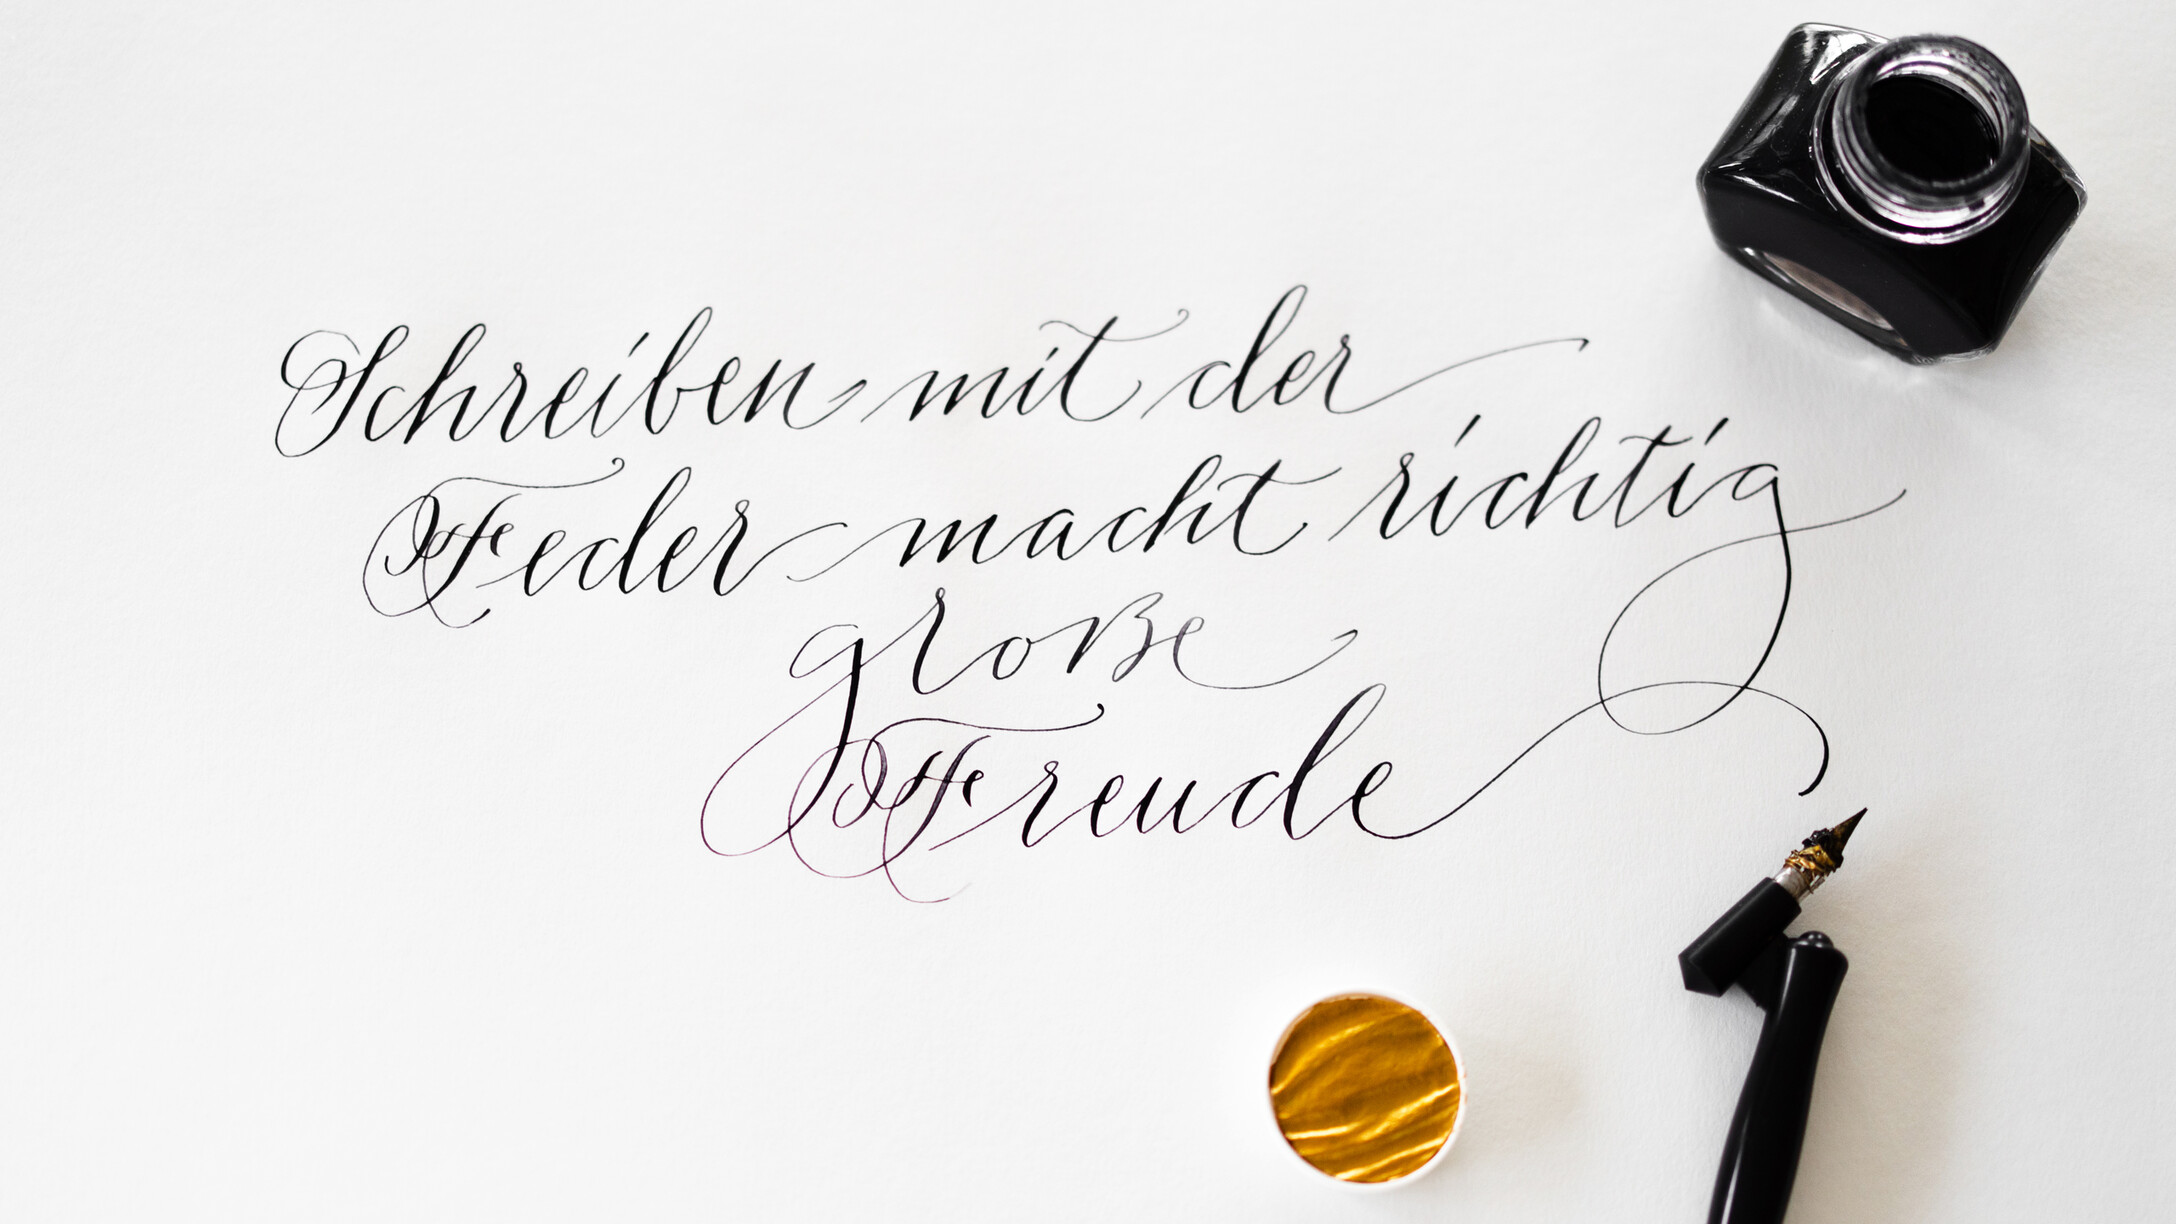 Schreiben mit der
Feder macht richtig
große
Freude